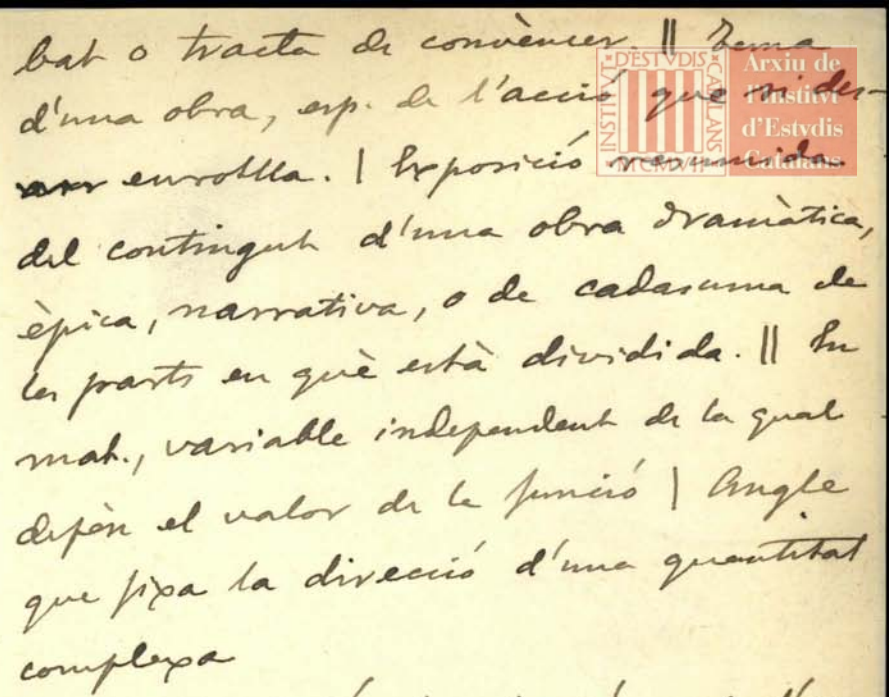 bat o tracta de convèncer. || Tema
d'una obra, esp. de l'acció que s'hi des-
enrotlla. | Exposició resumida
del contingut d'una obra dramàtica,
èpica, narrativa, o de cadascuna de
les parts en què està dividida. || En
mat., variable independent de la qual
depèn el valor de la funció | Angle
que fixa la direcció d'una quantitat
complexa
INSTITVT D'ESTVDIS CATALANS
MCMVII
Arxiu de
l'Institvt
d'Estvdis
Catalans